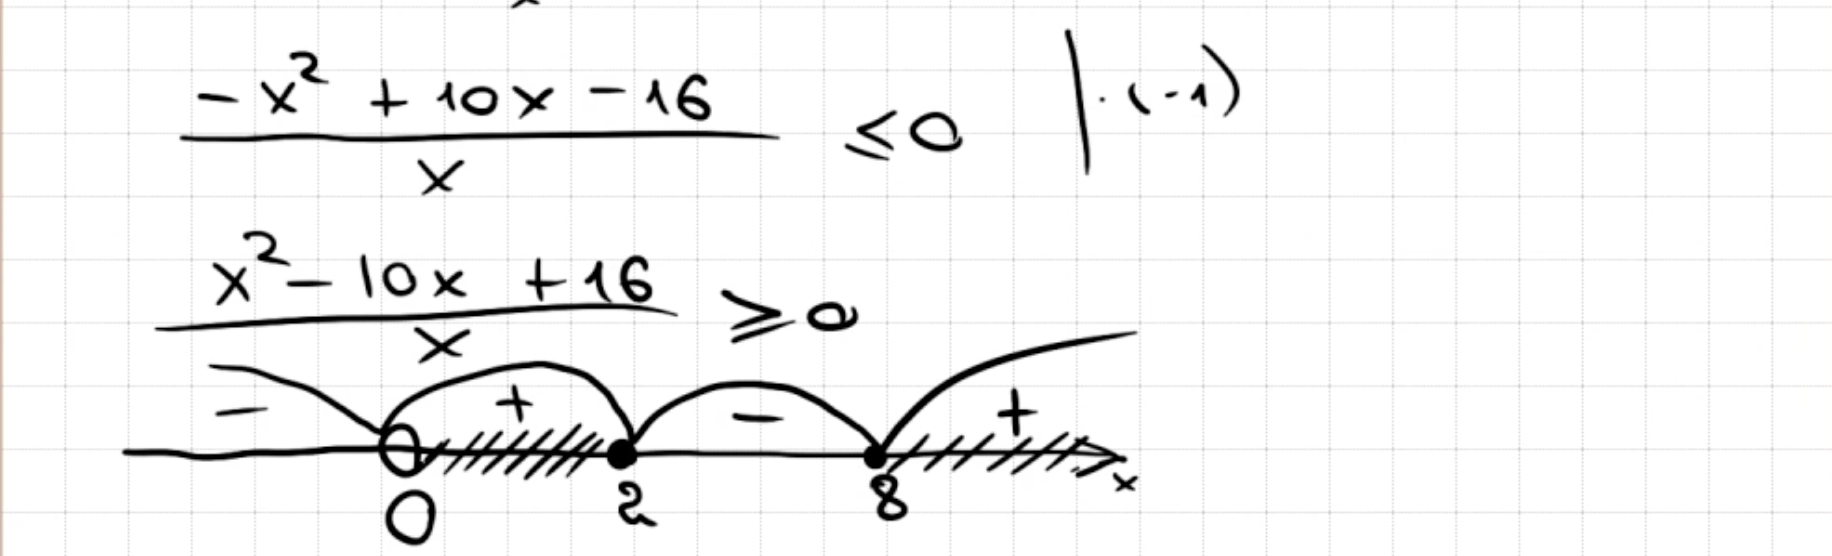 (-x² + 10x - 16)/x ≤ 0 | · (-1)
(x² - 10x + 16)/x ≥ 0
- + - +
0 2 8 x